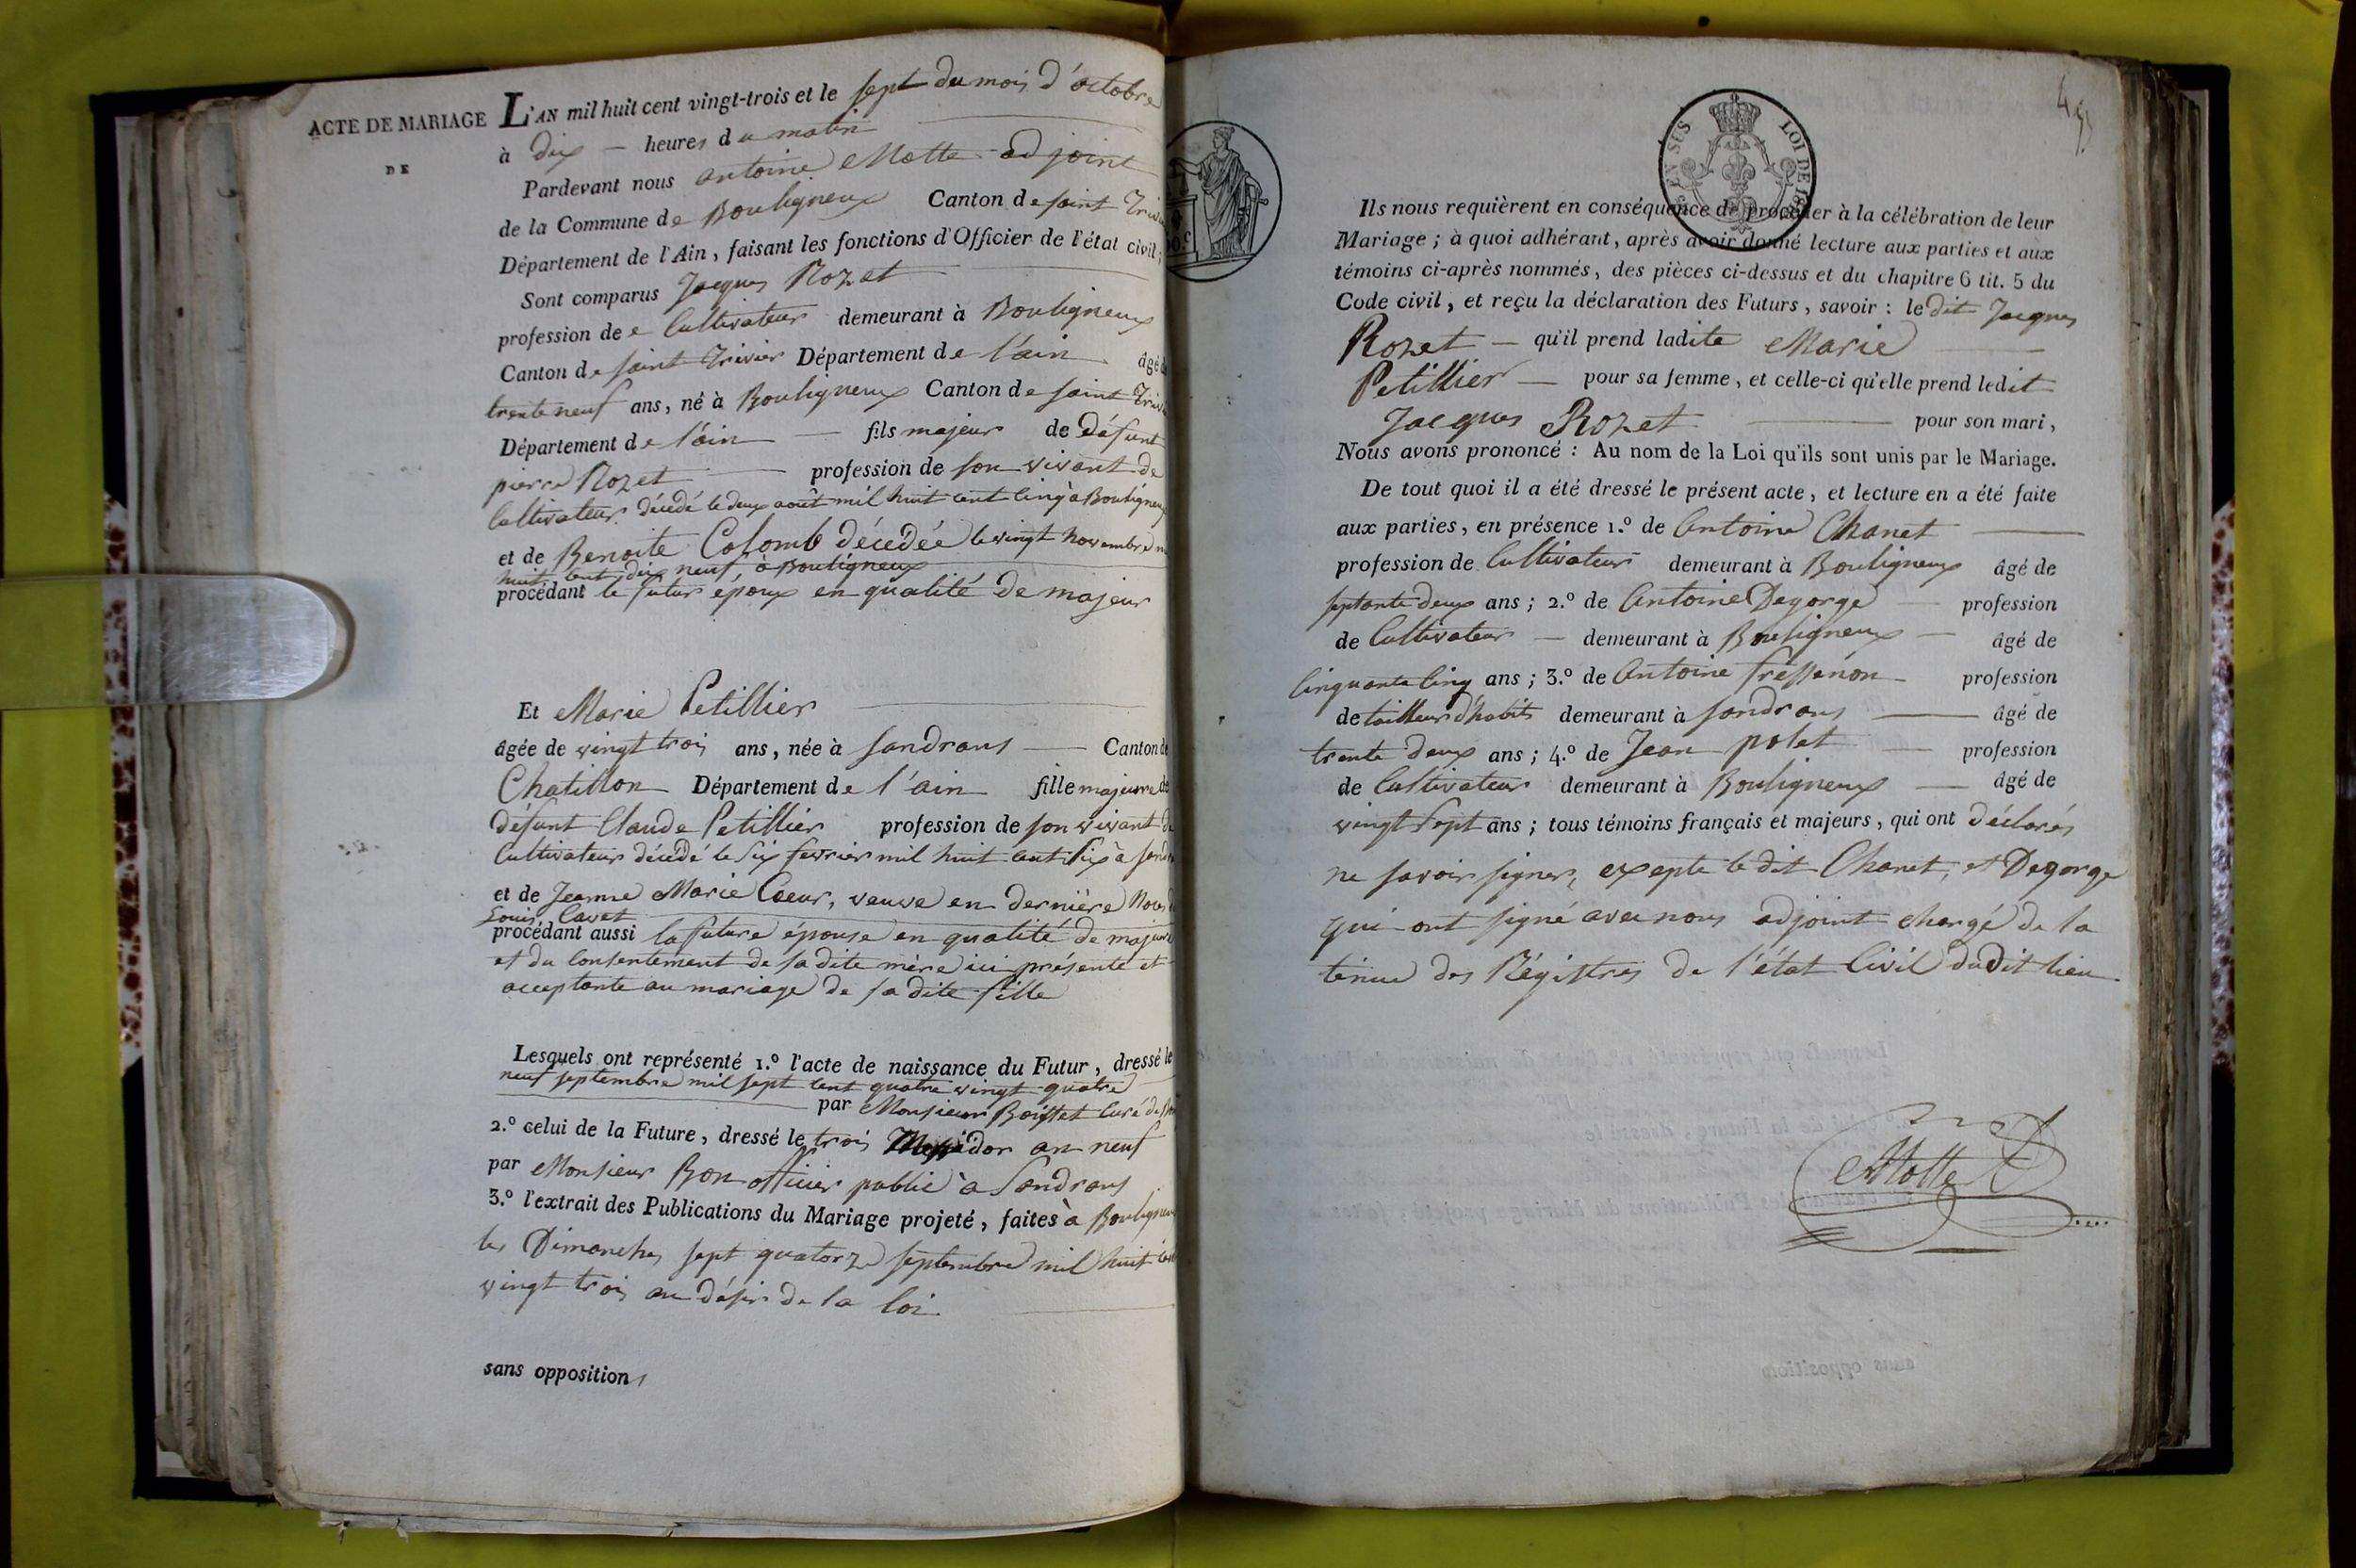 ACTE DE MARIAGE
DE
L'AN mil huit cent vingt-trois et le sept du mois d'octobre
à dix — heures du matin
Pardevant nous antoine Motte adjoint
de la Commune de Bouligneux Canton de saint
Département de l'Ain, faisant les fonctions d'Officier de l'état civil ;
Sont comparus Jacques Rozet
profession de e Cultivateur demeurant à Bouligneux
Canton de saint Trivier Département de l'ain âgé
trente neuf ans, né à Bouligneux Canton de saint
Département de l'ain — fils majeur de défunt
pierre Rozet profession de son vivant de
Cultivateur décédé le deux août mil huit cent cinq à Bouligneux
et de Benoite Colomb décedée le vingt novembre
huit cent dix neuf, à Bouligneux
procédant le futur époux en qualité de majeur
Et Marie Petillier
âgée de vingt trois ans, née à Sandrans — Canton de
Chatillon Département de l'ain fille majeure de
défunt Claude Petillier profession de son vivant
Cultivateur décédé le six fevrier mil huit cent six à
et de Jeanne Marie Coeur, veuve en dernière
Louis
procédant aussi la future épouse en qualité de majeure
et du Consentement de sa dite mère ici présente et
acceptante au mariage de sa dite fille
Lesquels ont représenté 1.º l'acte de naissance du Futur, dressé le
neuf septembre mil sept cent quatre vingt quatre
par Monsieur Boisset Curé de
2.º celui de la Future, dressé le trois Messidor an neuf
par Monsieur Bon officier public à Sandrans
3.º l'extrait des Publications du Mariage projeté, faites à Bouligneux
les Dimanches sept quatorze septembre mil huit cent
vingt trois au désir de la loi
sans opposition
Ils nous requièrent en conséquence de procéder à la célébration de leur
Mariage ; à quoi adhérant, après avoir donné lecture aux parties et aux
témoins ci-après nommés, des pièces ci-dessus et du chapitre 6 tit. 5 du
Code civil, et reçu la déclaration des Futurs, savoir : le dit Jacques
Rozet — qu'il prend ladite Marie
Petillier — pour sa femme, et celle-ci qu'elle prend ledit
Jacques Rozet — pour son mari,
Nous avons prononcé : Au nom de la Loi qu'ils sont unis par le Mariage.
De tout quoi il a été dressé le présent acte, et lecture en a été faite
aux parties, en présence 1.º de Antoine Chanet
profession de Cultivateur demeurant à Bouligneux âgé de
septante deux ans ; 2.º de Antoine Degorge — profession
de Cultivateur — demeurant à Bouligneux — âgé de
Cinquante Cinq ans ; 3.º de Antoine Fressenon profession
de tailleur d'habits demeurant à Sandrans — âgé de
trente deux ans ; 4.º de Jean polet — profession
de Cultivateur demeurant à Bouligneux — âgé de
vingt sept ans ; tous témoins français et majeurs, qui ont déclarés
ne savoir signer, excepte le dit Chanet, et Degorge
qui ont signé avec nous adjoint chargé de la
tenue des Régistres de l'état Civil dudit lieu
Motte